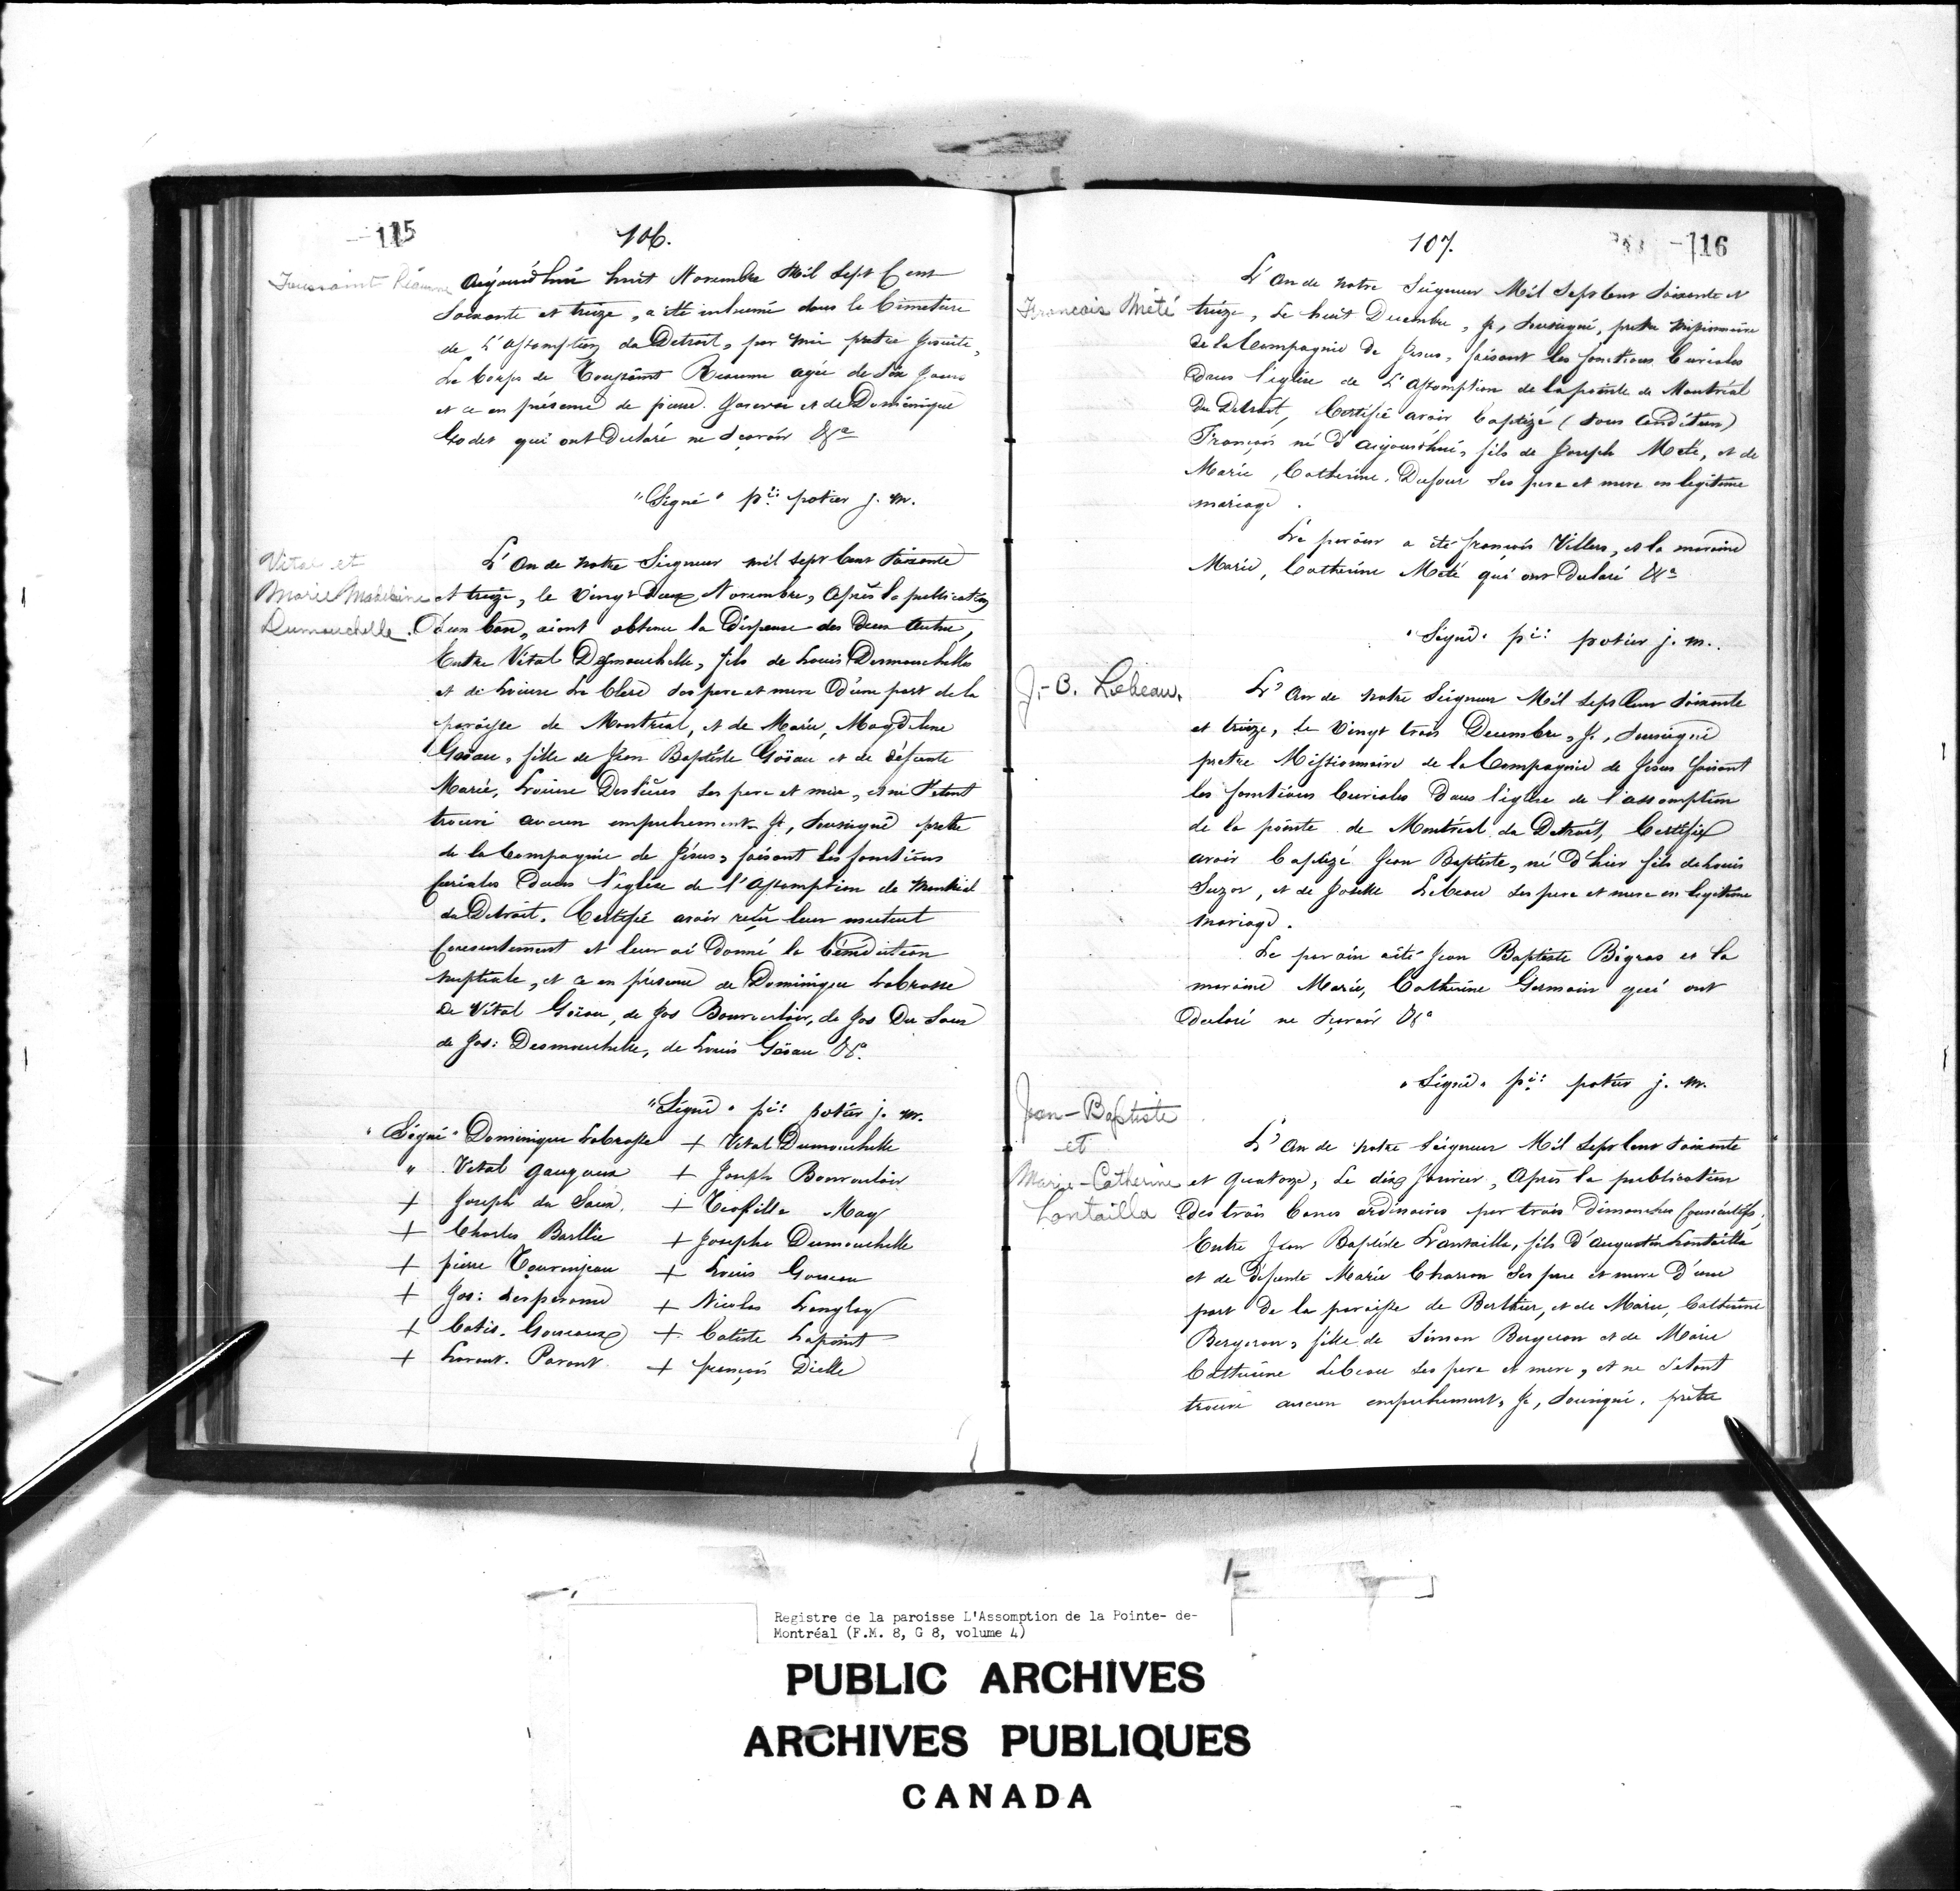 115
106.
Toussaint Réaume
Aujourd'hui huit Novembre Mil Sept Cent
Soixante et treize, a été inhumé dans le Cimetiere
de L'assomption du Detroit, par moi pretre Jesuite,
Le Corps de Toussaint Reaume agée de dix Jours
et ce en présence de pierre. et de Dominique
Godet qui ont Declaré ne Scavoir &a
"Signé" pi: potier j. m.
Vital et
Marie Madeleine
Dumouchelle.
L'An de notre Seigneur mil sept Cent Soixante
et treize, le Vingt Deux Novembre, Après la publication
d'un ban, aiant obtenu la Dispense des Deux Autre,
Entre Vital Desmouchelle, fils de Louis Desmouchelles
et de Louise Le Clerc Ses pere et mere D'une part de la
paroisse de Montréal, et de Marie, Magdelene
Goïau, fille de Jean Baptiste Goïau et de défunte
Marie, Louise Deslieres Ses pere et mere, et ne S'etant
trouvé aucun empechement Je, Soussigné pretre
de la Compagnie de Jésus, faisant les fonctions
Curiales Dans l'église de l'assomption de Montréal
du Detroit. Certifié avoir reçu leur mutuel
Consentement et leur ai Donné la bénédiction
nuptiale, et ce en présence de Dominique Labrosse
De Vital Goïau, de Jos Bourouloir, de Jos Du Saux
de Jos: Desmouchelle, de Louis Goïau &a.
"Signé" pi: potier j. m.
"Signé" Dominique Labrosse + Vital Dumouchelle
" Vital gaugoux + Joseph Bonvouloir
+ Joseph du Saux. + Teofille May
+ Charles Barllie + Josephe Dumouchelle
+ pierre Touronjeau + Louis Goueau
+ Jos: desperome + Nicolas Langloy
+ Batis. Goueaux + Batiste Lapoint
+ Lorant. Parent + françois Dielle
107.
116
François Mété
L'An de notre Seigneur Mil Sept Cent Soixante et
treize, Le huit Decembre, Je, Soussigné, pretre missionnaire
de la Compagnie de Jesus, faisant les fonctions Curiales
Dans l'église de L'Assomption de la pointe de Montréal
Du Detroit, Certifié avoir baptizé (sous Condition)
François né d'aujourd'hui, fils de Joseph Meté, et de
Marie, Catherine, Dufour Ses pere et mere en legitime
mariage.
Le parain a été françois Villers, et la maraine
Marie, Catherine Meté qui ont Declaré &a
"Signé" pi: potier j. m.
J.-B. Lebeau.
L'An de notre Seigneur Mil Sept Cent Soixante
et treize, le Vingt trois Decembre, Je, Soussigné
pretre Missionnaire de la Compagnie de Jesus faisant
les fonctions Curiales Dans l'église de l'assomption
de la pointe de Montréal du Detroit, Certifié
avoir baptizé Jean Baptiste, né d'hier fils de Louis
Suzor, et de Josette Lebeau Ses pere et mere en legitime
mariage.
Le parain a été Jean Baptiste Bigras et la
maraine Marie, Catherine Germain qui ont
Declaré ne sçavoir &a
"Signé" pi: potier j. m.
Jean-Baptiste
et
Marie-Catherine
Lontailla
L'An de notre Seigneur Mil Sept Cent Soixante
et Quatorze, Le dix Janvier, Après la publication
Des trois bancs ordinaires par trois Dimanches Consécutifs,
Entre Jean Baptiste Lantailla, fils d'augustin Lontailla
et de Defunte Marie Charon Ses pere et mere D'une
part De la paroisse de Berthier, et de Marie, Catherine
Bergeron, fille de Simon Bergeron et de Marie
Catherine Lebeau Ses pere et mere, et ne s'etant
trouvé aucun empechement, Je, Soussigné, pretre
Registre de la paroisse L'Assomption de la Pointe- de-
Montréal (F.M. 8, G 8, volume 4)
PUBLIC ARCHIVES
ARCHIVES PUBLIQUES
CANADA